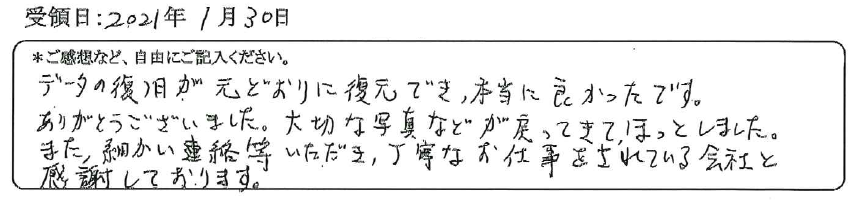 受領日:2021年1月30日
*ご感想など、自由にご記入ください。
データの復旧が元どおりに復元でき,本当に良かったです。
ありがとうございました。大切な写真などが戻ってきて,ほっとしました。
また,細かい連絡等いただき,丁寧なお仕事をされている会社と
感謝しております。